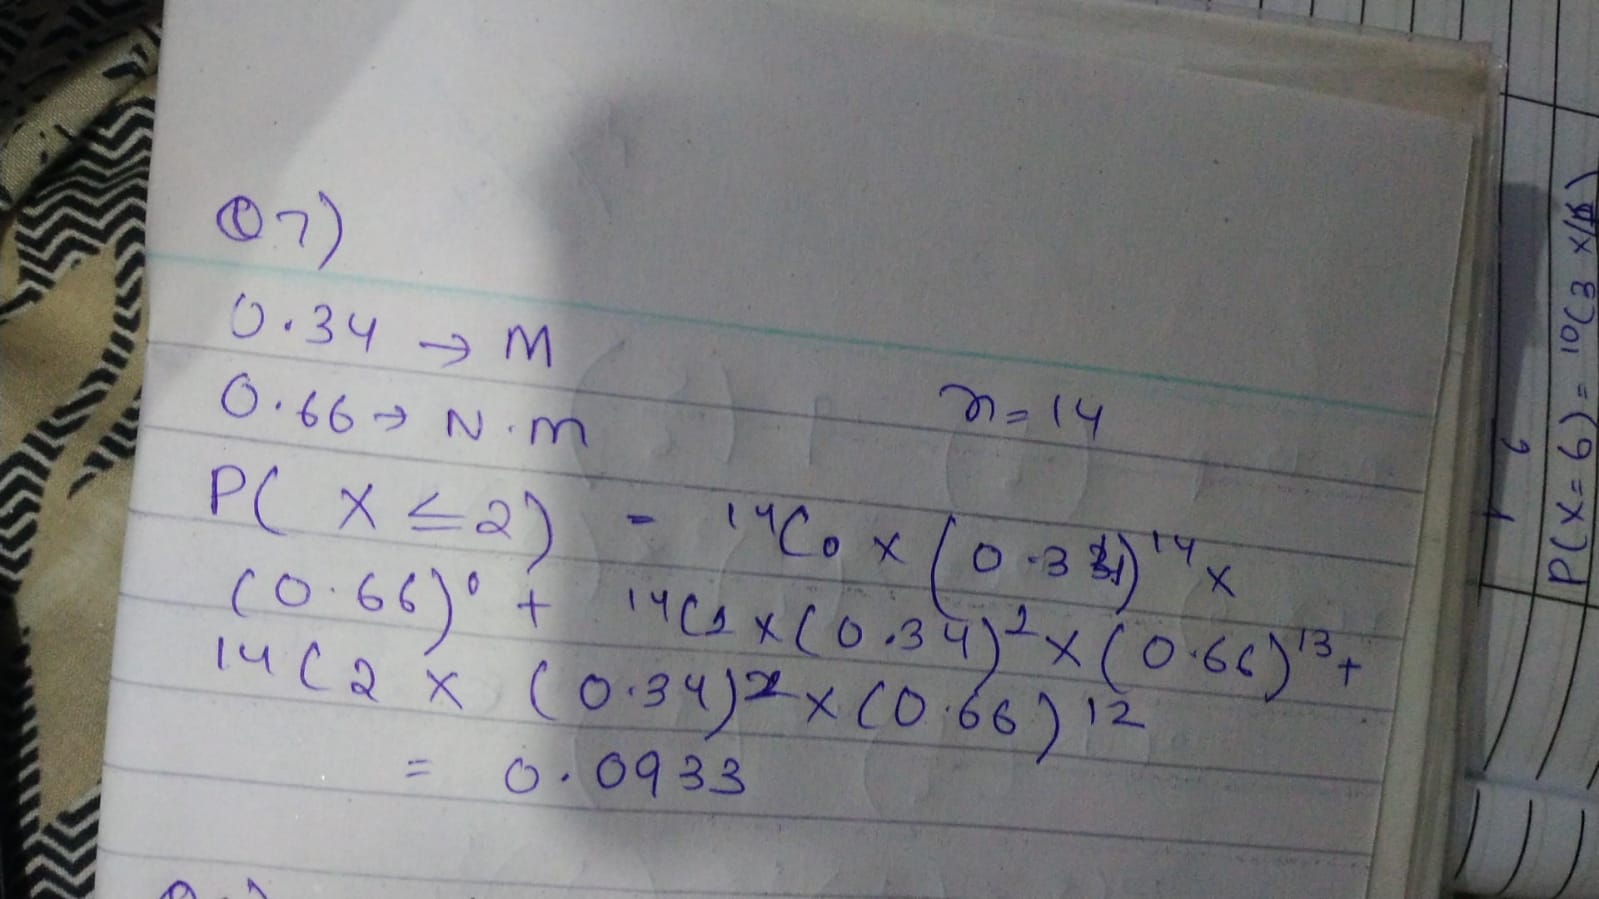 Q7)
0.34 → M
0.66 → N.M
n = 14
P( X ≤ 2) = 14C0 x (0.34)^14 x
(0.66)^0 + 14C1 x (0.34)^1 x (0.66)^13 +
14C2 x (0.34)^2 x (0.66)^12
= 0.0933
P(X=6) = 10C3 x